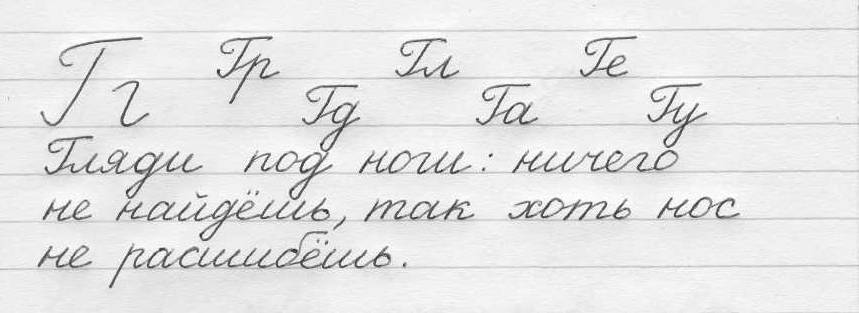 Гг Гр Гл Ге
Гд Га Гу
Гляди под ноги: ничего
не найдёшь, так хоть нос
не расшибёшь.